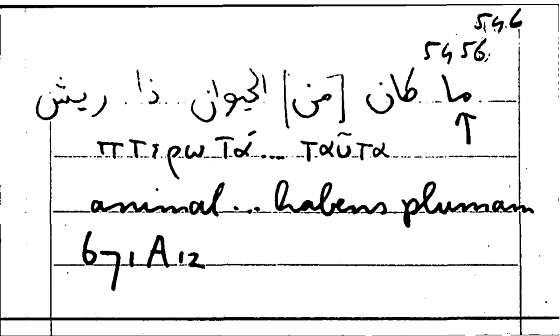 546
5456
ما كان [من] الحيوان ذا ريش
↑
πτερωτά... ταῦτα
animal... habens plumam
671A12